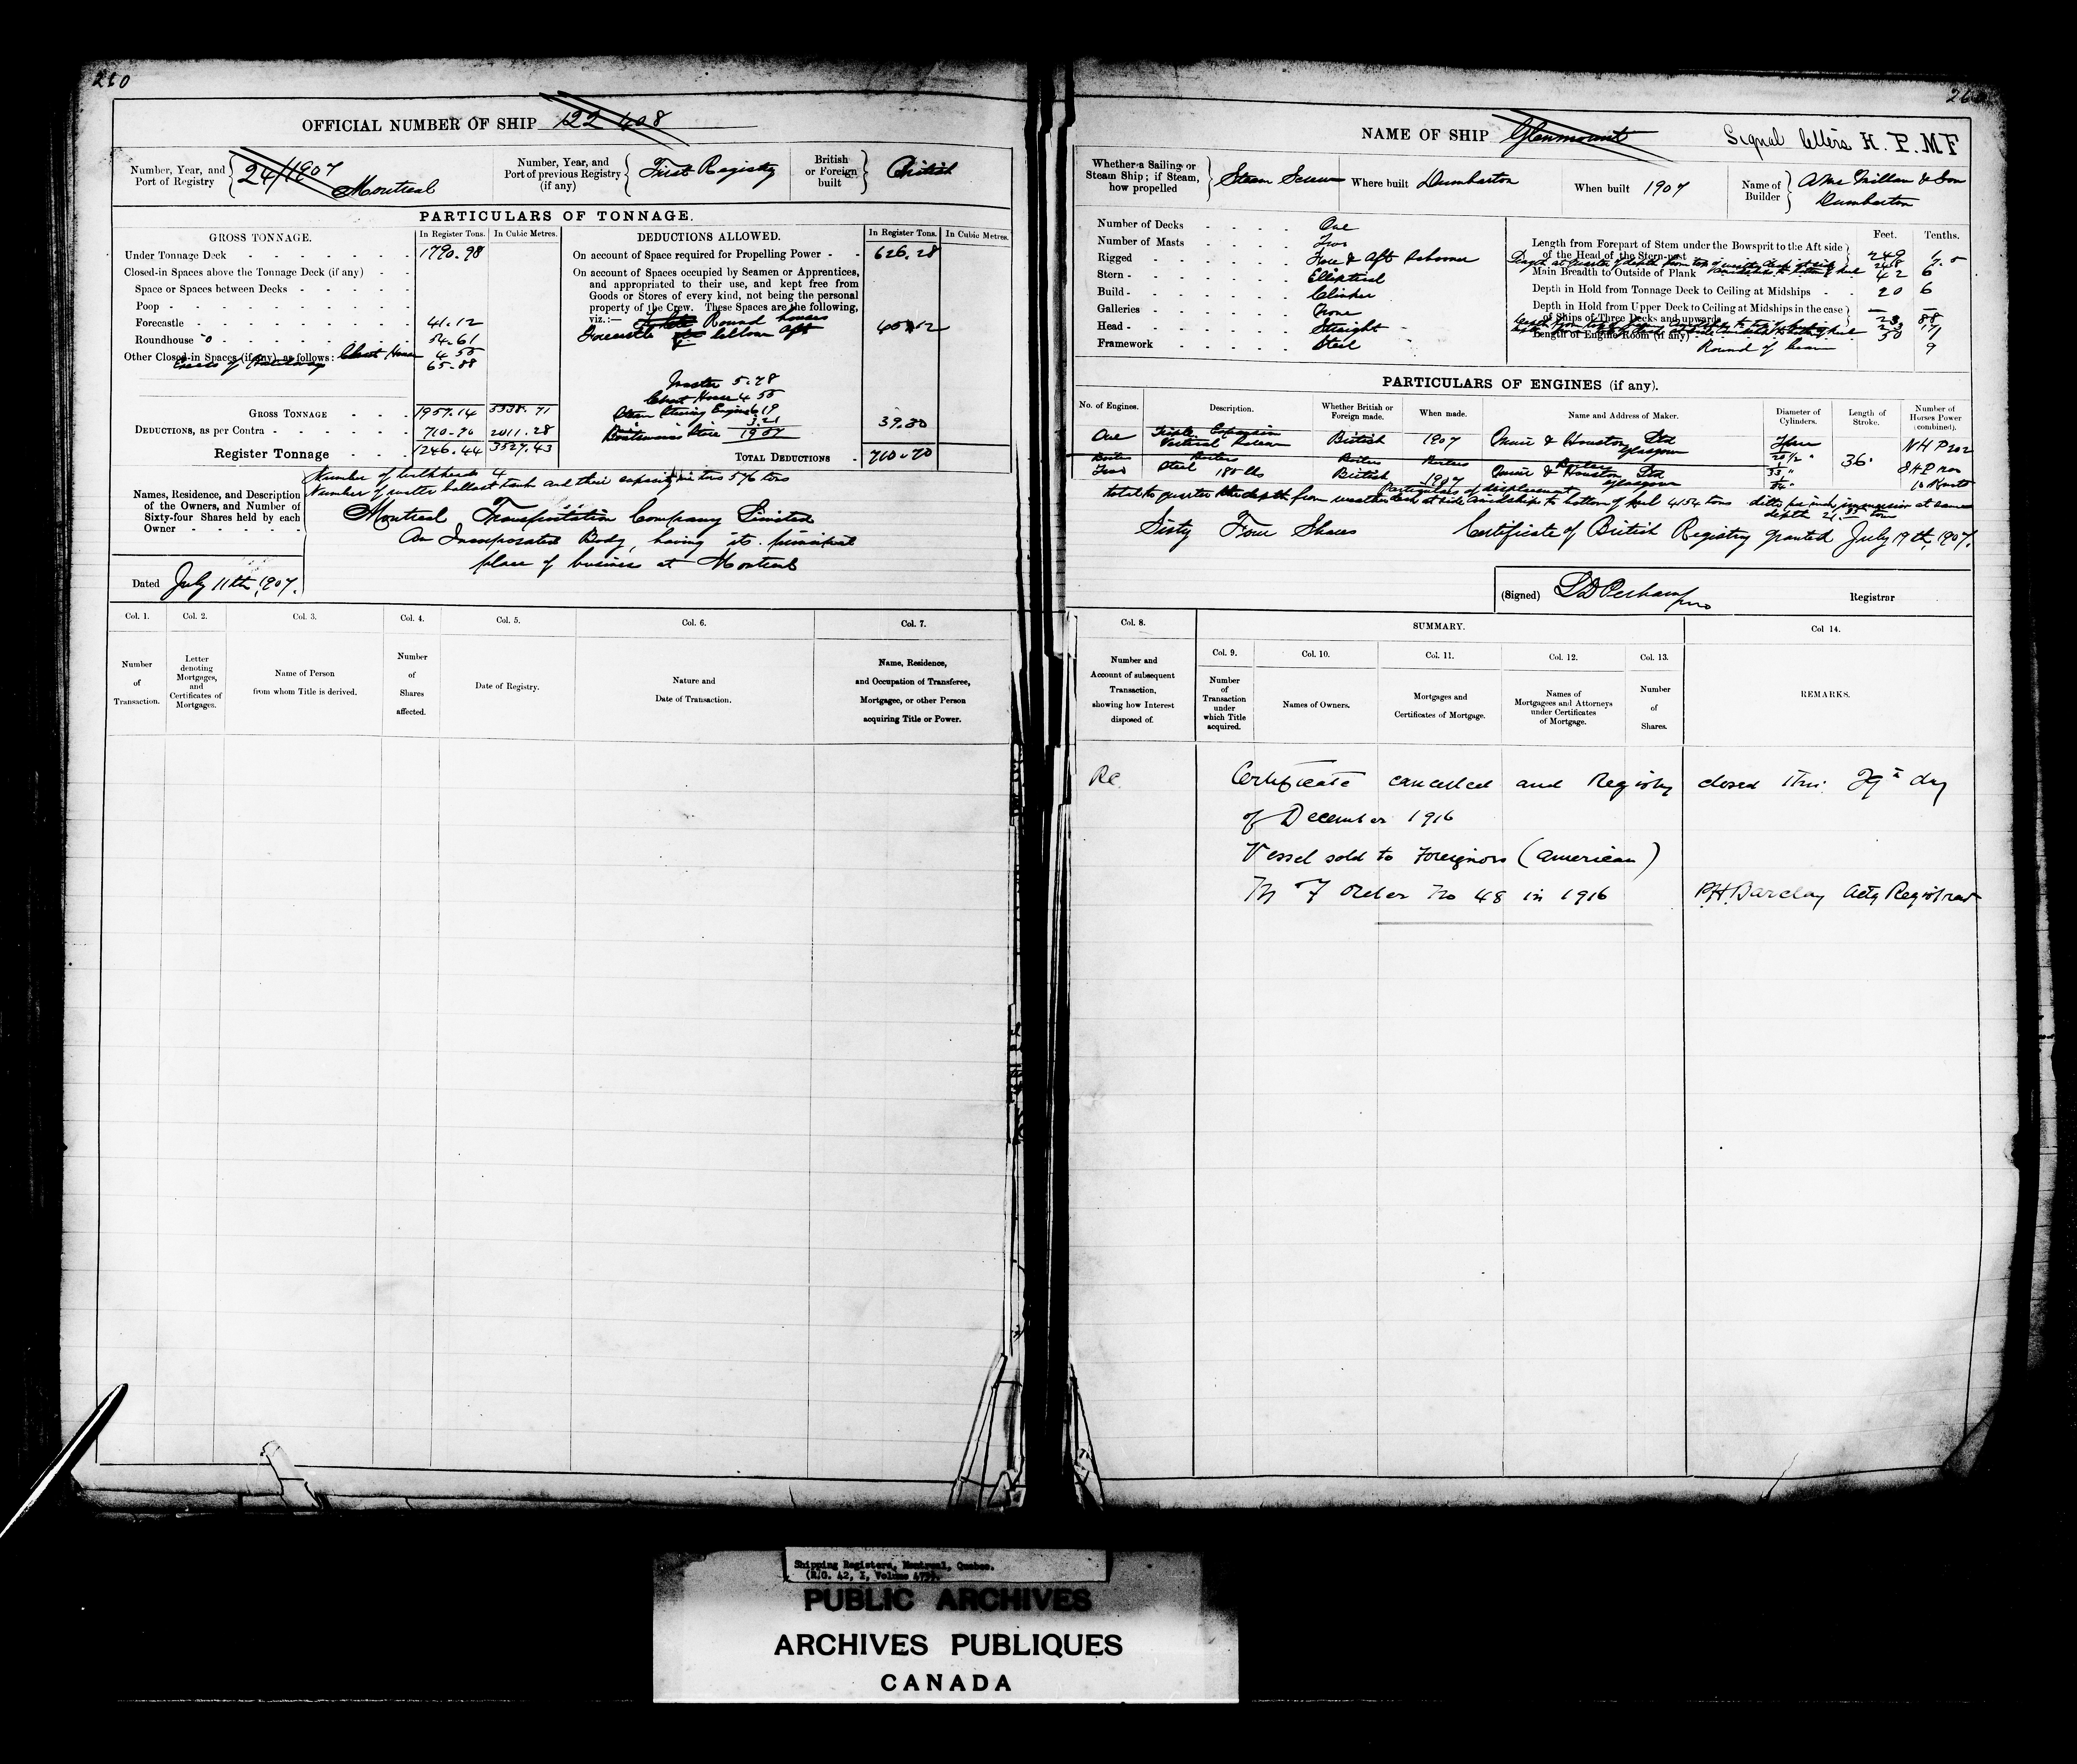 210
OFFICIAL NUMBER OF SHIP 122 408
Number, Year, and Port of Registry 24/1907 Montreal
Number, Year, and Port of previous Registry (if any) First Registry
British or Foreign built British
PARTICULARS OF TONNAGE.
GROSS TONNAGE. In Register Tons. In Cubic Metres.
Under Tonnage Deck 1790.98
Closed-in Spaces above the Tonnage Deck (if any)
Space or Spaces between Decks
Poop
Forecastle 41.12
Roundhouse 54.61
Other Closed-in Spaces (if any), as follows: Chart House 4.55
Excess of Hatchways 65.88
GROSS TONNAGE 1957.14 5538.71
DEDUCTIONS, as per Contra 710.70 2011.28
Register Tonnage 1246.44 3527.43
DEDUCTIONS ALLOWED. In Register Tons. In Cubic Metres.
On account of Space required for Propelling Power 626.28
On account of Spaces occupied by Seamen or Apprentices,
and appropriated to their use, and kept free from
Goods or Stores of every kind, not being the personal
property of the Crew. These Spaces are the following,
viz.:— Round houses
Forecastle aft 45.12
Master 5.28
Chart House 4.55
Steam Steering Engine 6.19
3.21
Boatswain's Store 39.30
TOTAL DEDUCTIONS 710.70
Number of bulkheads 4
Number of water ballast tanks and their capacity in tons 576 tons
Names, Residence, and Description
of the Owners, and Number of
Sixty-four Shares held by each
Owner
Montreal Transportation Company Limited
An Incorporated Body, having its principal
place of business at Montreal
Dated July 11th, 1907.
Col. 1. Col. 2. Col. 3. Col. 4. Col. 5. Col. 6. Col. 7.
Number of Transaction.
Letter denoting Mortgages, and Certificates of Mortgages.
Name of Person from whom Title is derived.
Number of Shares affected.
Date of Registry.
Nature and Date of Transaction.
Name, Residence, and Occupation of Transferee, Mortgagee, or other Person acquiring Title or Power.
NAME OF SHIP Glenmount
Signal letters H. P. M F
Whether a Sailing or Steam Ship; if Steam, how propelled Steam Screw
Where built Dumbarton
When built 1907
Name of Builder A McMillan & Son Dumbarton
Number of Decks One
Number of Masts Two
Rigged Fore & Aft Schooner
Stern Elliptical
Build Clinker
Galleries None
Head Straight
Framework Steel
Feet. Tenths.
Length from Forepart of Stem under the Bowsprit to the Aft side
of the Head of the Stern-post 249
Main Breadth to Outside of Plank 42 6
Depth in Hold from Tonnage Deck to Ceiling at Midships 20 6
Depth in Hold from Upper Deck to Ceiling at Midships in the case
of Ships of Three Decks and upwards
Length of Engine Room (if any) 50
Round of beam 9
PARTICULARS OF ENGINES (if any).
No. of Engines. Description. Whether British or Foreign made. When made. Name and Address of Maker. Diameter of Cylinders. Length of Stroke. Number of Horses Power (combined).
One Triple Expansion British 1907 & Houston Ltd Glasgow 36" NHP 202
Two Steel 180 lbs British 1907 & Houston Ltd Glasgow
Particulars of displacement
Sixty Four Shares
Certificate of British Registry granted July 19th, 1907.
(Signed) Registrar
Col. 8. SUMMARY. Col 14.
Col. 9. Col. 10. Col. 11. Col. 12. Col. 13.
Number and Account of subsequent Transaction, showing how Interest disposed of.
Number of Transaction under which Title acquired.
Names of Owners.
Mortgages and Certificates of Mortgage.
Names of Mortgagees and Attorneys under Certificates of Mortgage.
Number of Shares.
REMARKS.
Re. Certificate cancelled and Registry closed this 29th day
of December 1916
Vessel sold to Foreigners (American)
M F Order No 48 in 1916 P.H. Barclay Actg Registrar
Shipping Registers, Montreal, Quebec.
PUBLIC ARCHIVES
ARCHIVES PUBLIQUES
CANADA